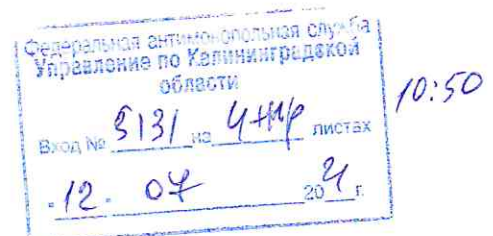 Федеральная антимонопольная служба
Управление по Калининградской
области
Вход № 5131 на листах
"12" 07 2021 г.
10:50